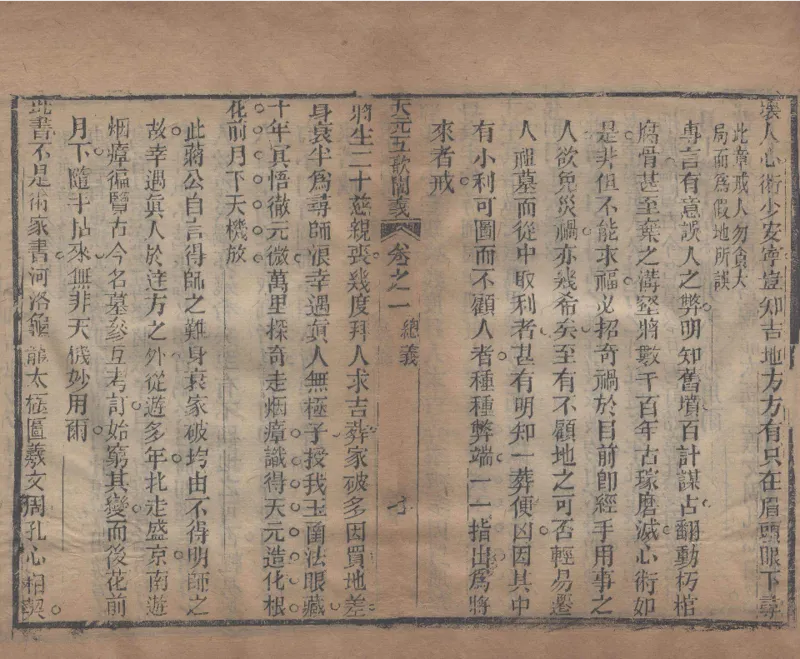 壞人心術少安寧豈知吉地方方有只在眉頭眼下尋
此章戒人勿貪大
局而爲假地所誤
專言有意誤人之弊明知舊墳百計謀占翻動朽棺
腐骨甚至棄之溝壑將數千百年古琢磨滅心術如
是非但不能求福必招奇禍於目前卽經手用事之
人欲免災禍亦幾希矣至有不顧地之可否輕易遷
人祖墓而從中取利者甚有明知一葬便凶因其中
有小利可圖而不顧人者種種弊端一一指出爲將
來者戒
天元五歌闡義 卷之一 總義
將生二十慈親喪幾度拜人求吉葬家破多因買地差
身衰半爲尋師浪幸遇眞人無極子授我玉函法眼藏
十年冥悟徹元微萬里探奇走烟瘴識得天元造化根
花前月下天機放
此蔣公自言得師之難身衰家破均由不得明師之
故幸遇眞人於達方之外從遊多年北走盛京南遊
烟瘴徧覽古今名墓參互考訂始窮其變而後花前
月下隨手拈來無非天機妙用爾
此書不是術家書河洛龜龍太極圖羲文周孔心相契